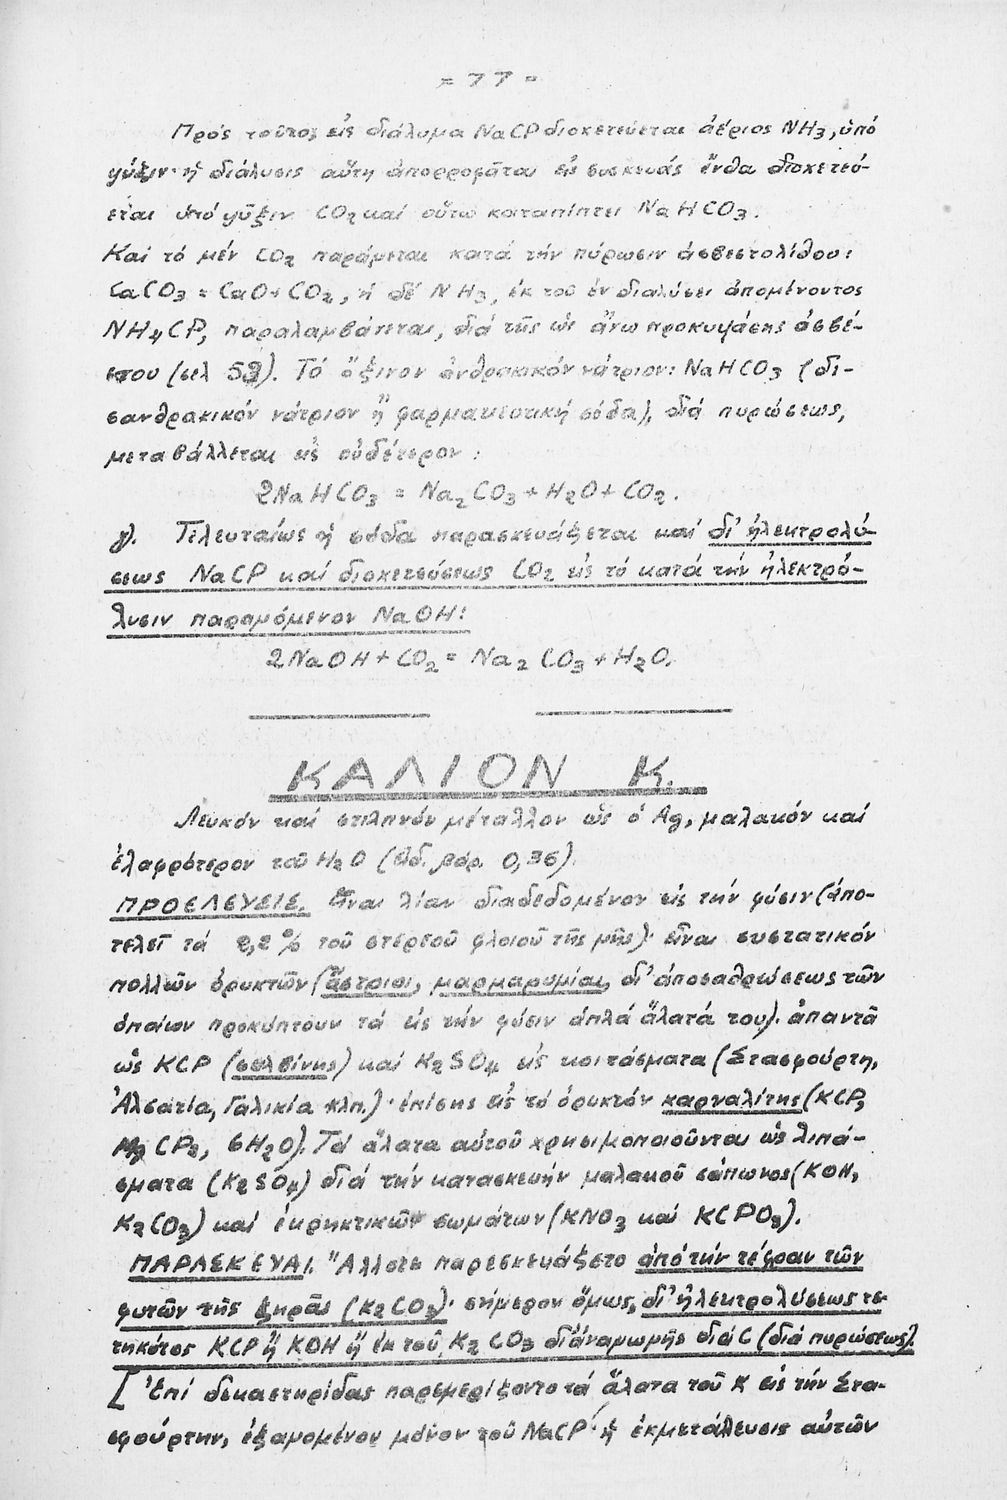 - 77 -
Πρός τοῦτος εἰς διάλυμα NaCP διοχετεύεται ἀέριος NH3, ὑπό
ψῦξιν· ἡ διάλυσις αὕτη ἀπορροφᾶται εἰς συσκευάς ἔνθα διοχετεύ-
εται ὑπό ψῦξιν CO2 καί οὕτω καταπίπτει NaHCO3.
Καί τό μέν CO2 παράγεται κατά τήν πύρωσιν ἀσβεστολίθου:
CaCO3 = CaO + CO2, ἡ δέ NH3, ἐκ τοῦ ἐν διαλύσει ἀπομένοντος
NH4CP, παραλαμβάνεται, διά τῆς ὡς ἄνω προκυψάσης ἀσβέ-
στου (σελ 53). Τό ὄξινον ἀνθρακικόν νάτριον: NaHCO3 (δι-
σανθρακικόν νάτριον ἤ φαρμακευτική σόδα), διά πυρώσεως,
μεταβάλλεται εἰς οὐδέτερον:
2NaHCO3 = Na2CO3 + H2O + CO2.
γ). Τελευταίως ἡ σόδα παρασκευάζεται καί δι' ἠλεκτρολύ-
σεως NaCP καί διοχετεύσεως CO2 εἰς τό κατά τήν ἠλεκτρό-
λυσιν παραγόμενον NaOH:
2NaOH + CO2 = Na2CO3 + H2O.
ΚΑΛΙΟΝ K.
Λευκόν καί στιλπνόν μέταλλον ὡς ὁ Ag, μαλακόν καί
ἐλαφρότερον τοῦ H2O (εἰδ. βάρ. 0,36).
ΠΡΟΕΛΕΥΣΙΣ. Εἶναι λίαν διαδεδομένον εἰς τήν φύσιν (ἀπο-
τελεῖ τά 2,2% τοῦ στερεοῦ φλοιοῦ τῆς γῆς)· εἶναι συστατικόν
πολλῶν ὀρυκτῶν (ἄστριοι, μαρμαρυγίαι, δι' ἀποσαθρώσεως τῶν
ὁποίων προκύπτουν τά εἰς τήν φύσιν ἁπλᾶ ἅλατά του). ἀπαντᾶ
ὡς KCP (σελβίνης) καί K2SO4 εἰς κοιτάσματα (Στασφούρτη,
Ἀλσατία, Γαλικία κλπ.)· ἐπίσης εἰς τό ὀρυκτόν καρναλίτης (KCP,
MgCP2, 6H2O). Τά ἅλατα αὐτοῦ χρησιμοποιοῦνται ὡς λιπά-
σματα (K2SO4) διά τήν κατασκευήν μαλακοῦ σάπωνος (KOH,
K2CO3) καί ἐκρηκτικῶν σωμάτων (KNO3 καί KCPO3).
ΠΑΡΑΣΚΕΥΑΙ. Ἄλλοτε παρεσκευάζετο ἀπό τήν τέφραν τῶν
φυτῶν τῆς ξηρᾶς (K2CO3)· σήμερον ὅμως, δι' ἠλεκτρολύσεως τε-
τηκότος KCP ἤ KOH ἤ ἐκ τοῦ K2CO3 δι' ἀναγωγῆς διά C (διά πυρώσεως).
[Ἐπί δεκαετηρίδας παρεμερίζοντο τά ἅλατα τοῦ K εἰς τήν Στα-
σφούρτην, ἐξαγομένου μόνον τοῦ NaCP· ἡ ἐκμετάλευσις αὐτῶν